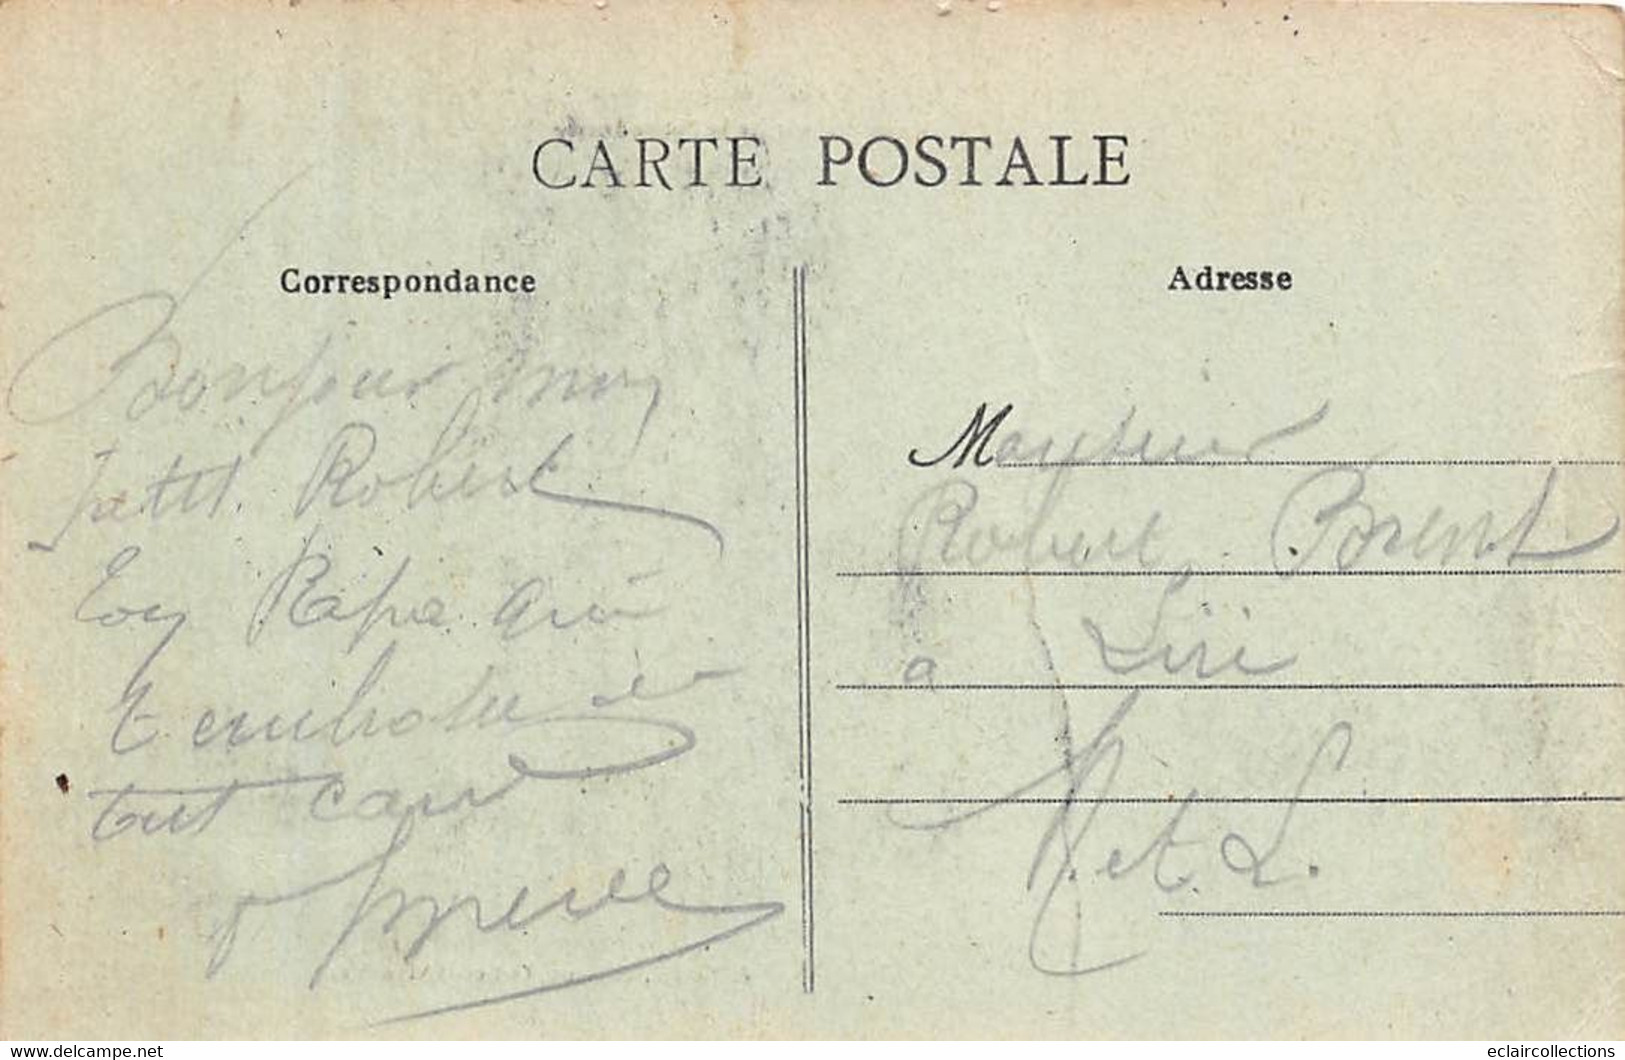 CARTE POSTALE
Correspondance
Adresse
Bonjour mon
petit Robert
Ton Papa qui
t'embrasse de
tout cœur
Monsieur
Robert Brent
a Liré
M. et L.
www.delcampe.net
eclaircollections